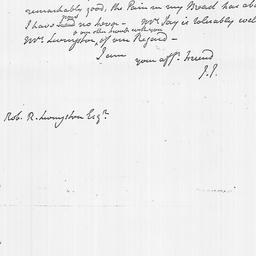 remarkably good, the Pain in my Head has
I have had no fever - Mrs. Jay is tolerably well
& my other friends with you
Mrs. Livingston, of our Regard -
I am
your afft. friend
J.J.
Rob. R. Livingston Esqr.